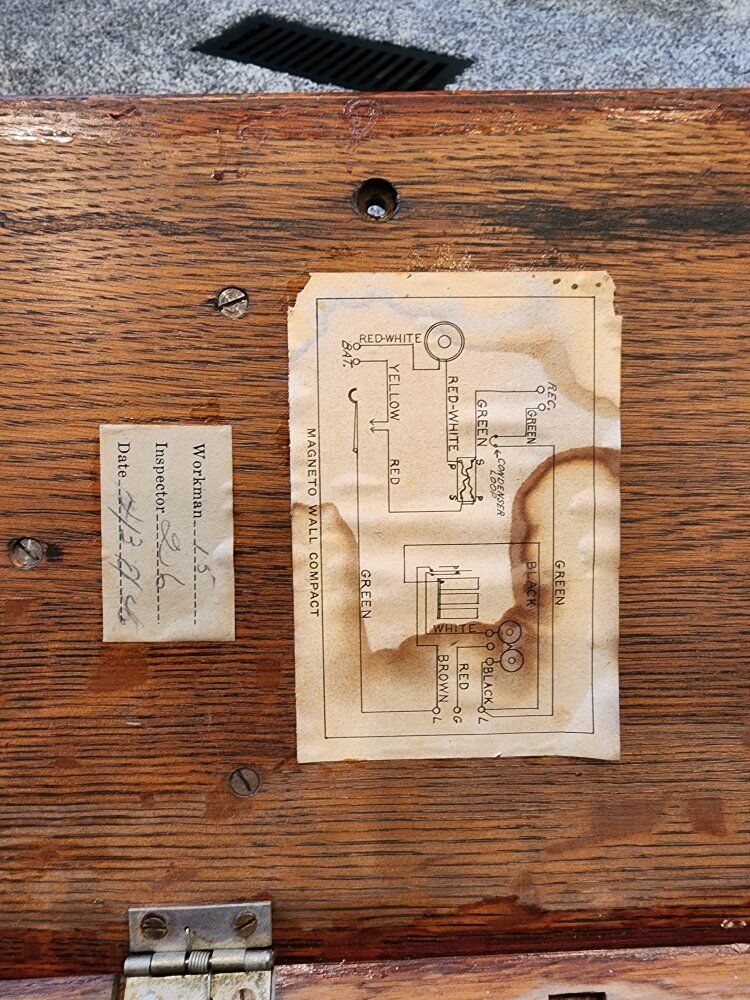 REC.
GREEN
GREEN
CONDENSER
LOOP
GREEN
BLACK
RED-WHITE
RED-WHITE
S
P
P
S
BAT.
YELLOW
RED
WHITE
BLACK
L
RED
G
BROWN
L
GREEN
MAGNETO WALL COMPACT
Workman 15
Inspector
Date